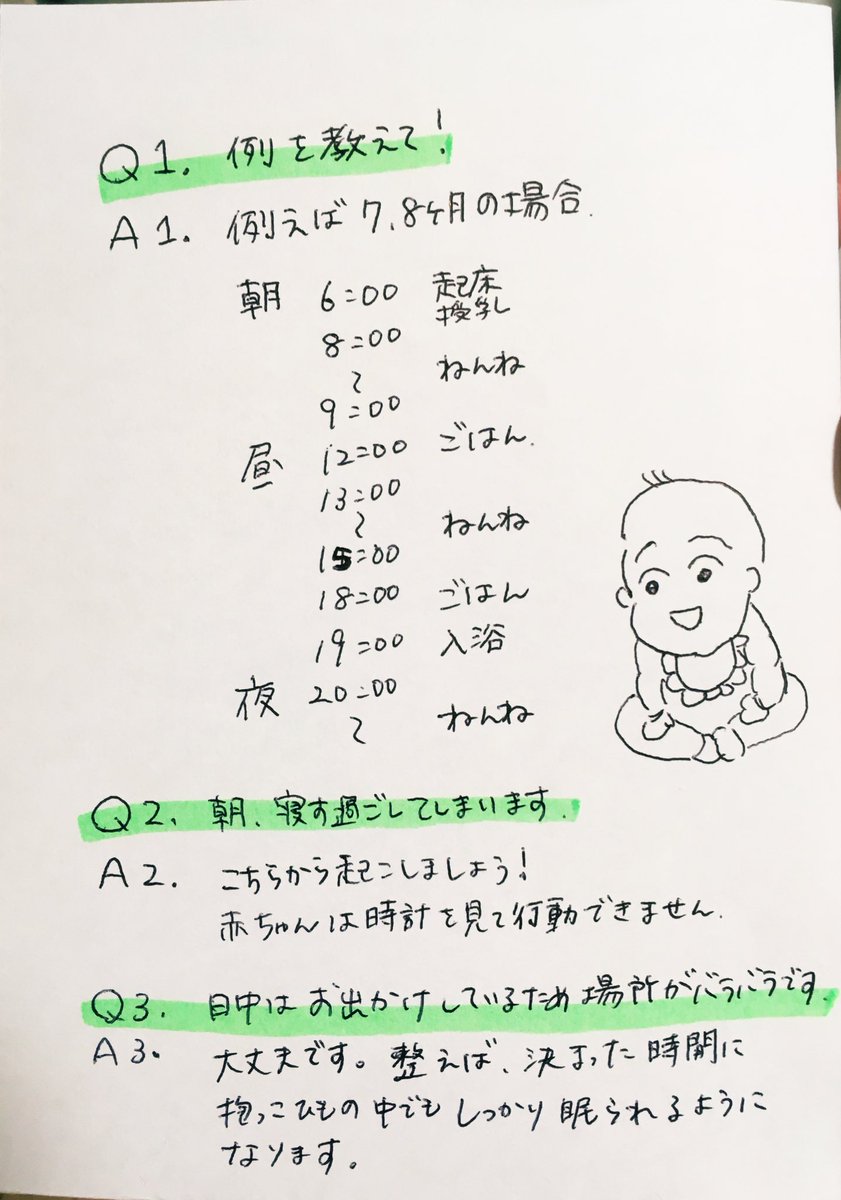 Q1. 例を教えて！
A1. 例えば7、8ヶ月の場合.
朝 6:00 起床
授乳
8:00
〜 ねんね
9:00
昼 12:00 ごはん.
13:00
〜 ねんね
15:00
18:00 ごはん
19:00 入浴
夜 20:00
〜 ねんね
Q2. 朝、寝す過ごしてしまいます.
A2. こちらから起こしましょう！
赤ちゃんは時計を見て行動できません.
Q3. 日中はお出かけしているため場所がバラバラです.
A3. 大丈夫です。整えば、決まった時間に
抱っこひもの中でもしっかり眠られるように
なります。